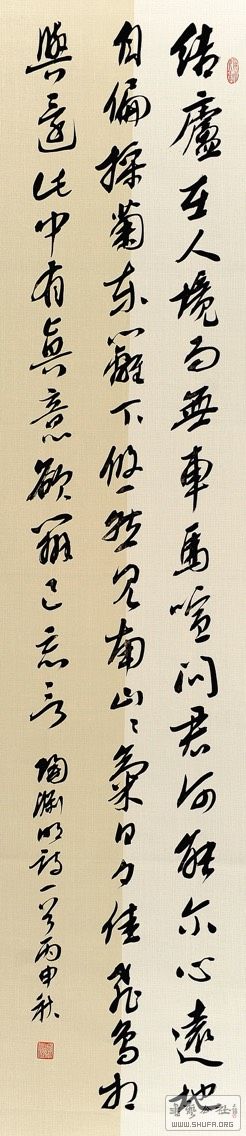 結廬在人境而無車馬喧問君何能尓心遠地
自偏採菊東籬下悠然見南山〻氣日夕佳飛鳥相
與還此中有真意欲辨已忘言
陶淵明詩一首丙申秋
書藝公社
WWW.SHUFA.ORG